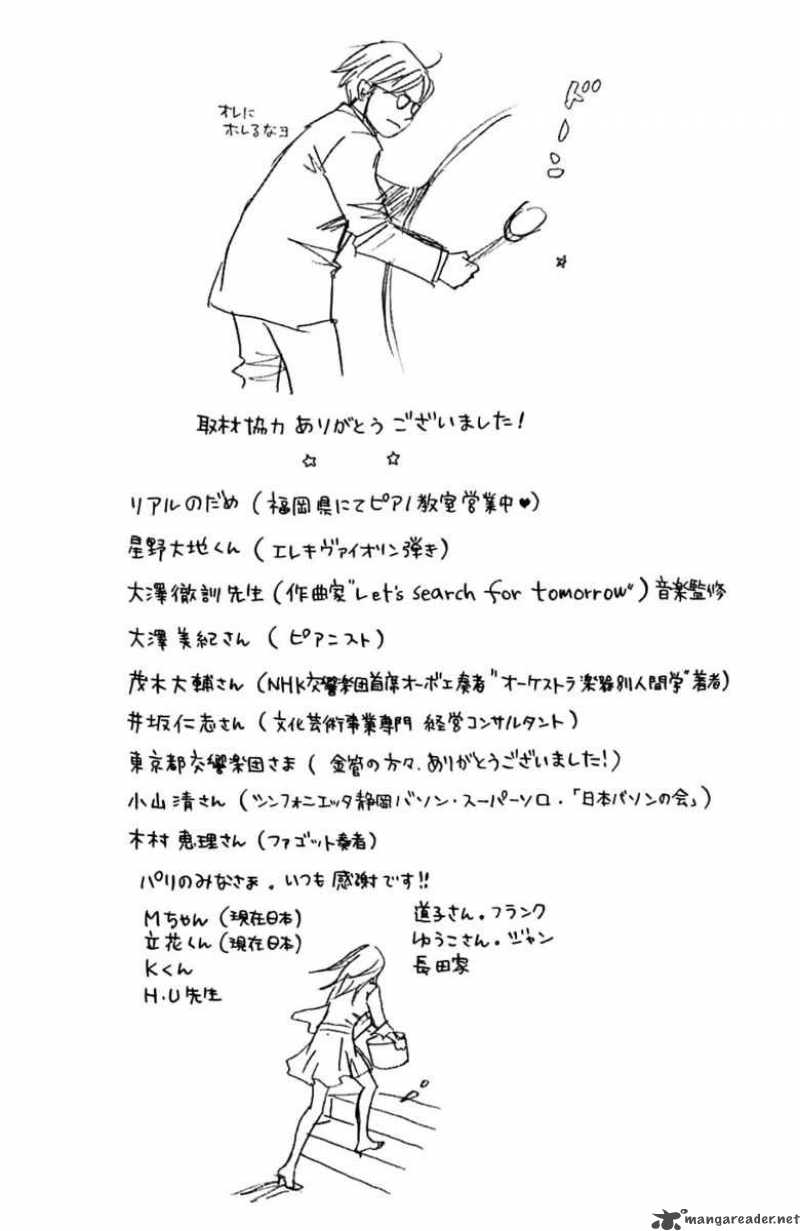 オレに
ホレるなヨ
ドーン
取材協力 ありがとう ございました!
リアルのだめ (福岡県にてピアノ教室営業中♥)
星野大地くん (エレキヴァイオリン弾き)
大澤徹訓先生 (作曲家"Let's search for tomorrow") 音楽監修
大澤美紀さん (ピアニスト)
茂木大輔さん (NHK交響楽団首席オーボエ奏者"オーケストラ楽器別人間学"著者)
井坂仁志さん (文化芸術事業専門 経営コンサルタント)
東京都交響楽団さま (金管の方々、ありがとうございました!)
小山清さん (シンフォニエッタ静岡バソン・スーパーソロ・「日本バソンの会」)
木村恵理さん (ファゴット奏者)
パリのみなさま。いつも感謝です!!
Mちゃん (現在日本)
立花くん (現在日本)
Kくん
H.U先生
道子さん。フランク
ゆうこさん。ジャン
長田家
mangareader.net